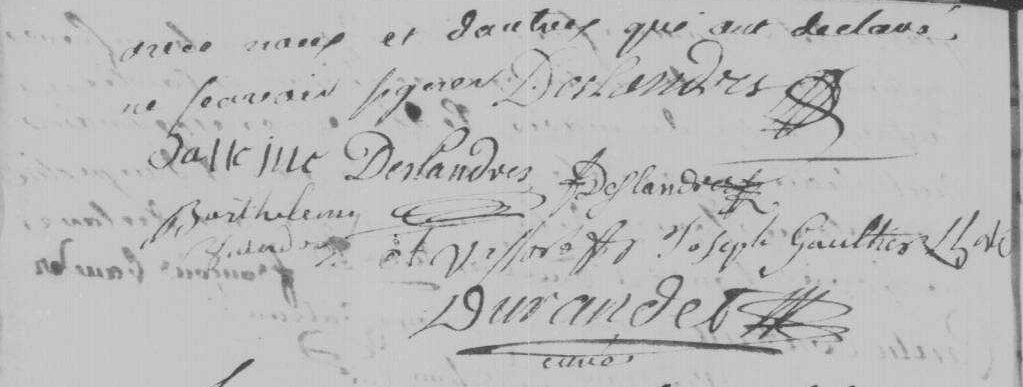 avec nous et dautres qui ont declaré
ne scavoir signer Deslandres
Deslandres Deslandres
Barthelemy
Joseph Gaultier
Durandet
curé